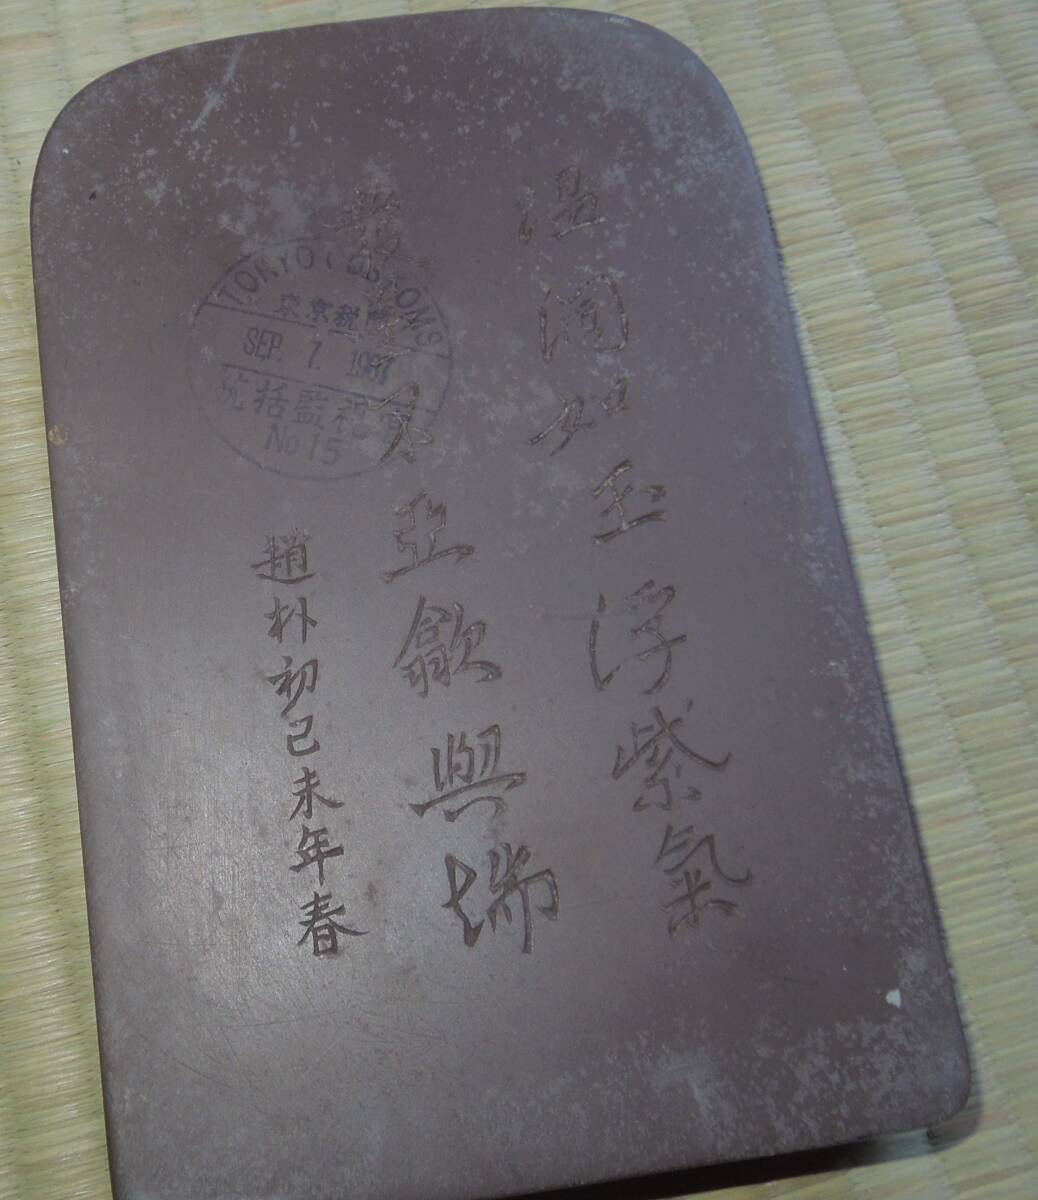 温潤如玉浮紫氣
不亞歙與端
趙朴初己未年春
TOKYO CUSTOMS
東京税関
SEP. 7. 1987
統括監視官
No 15